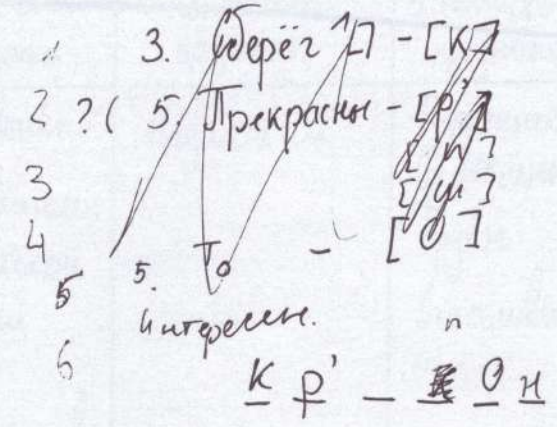 3. сберёг [] - [К]
2 ? ( 5. Прекрасны - [р']
[п]
3 [ш]
4 [О]
5 5. То -
интересен. п
6
К р' _ _ О н